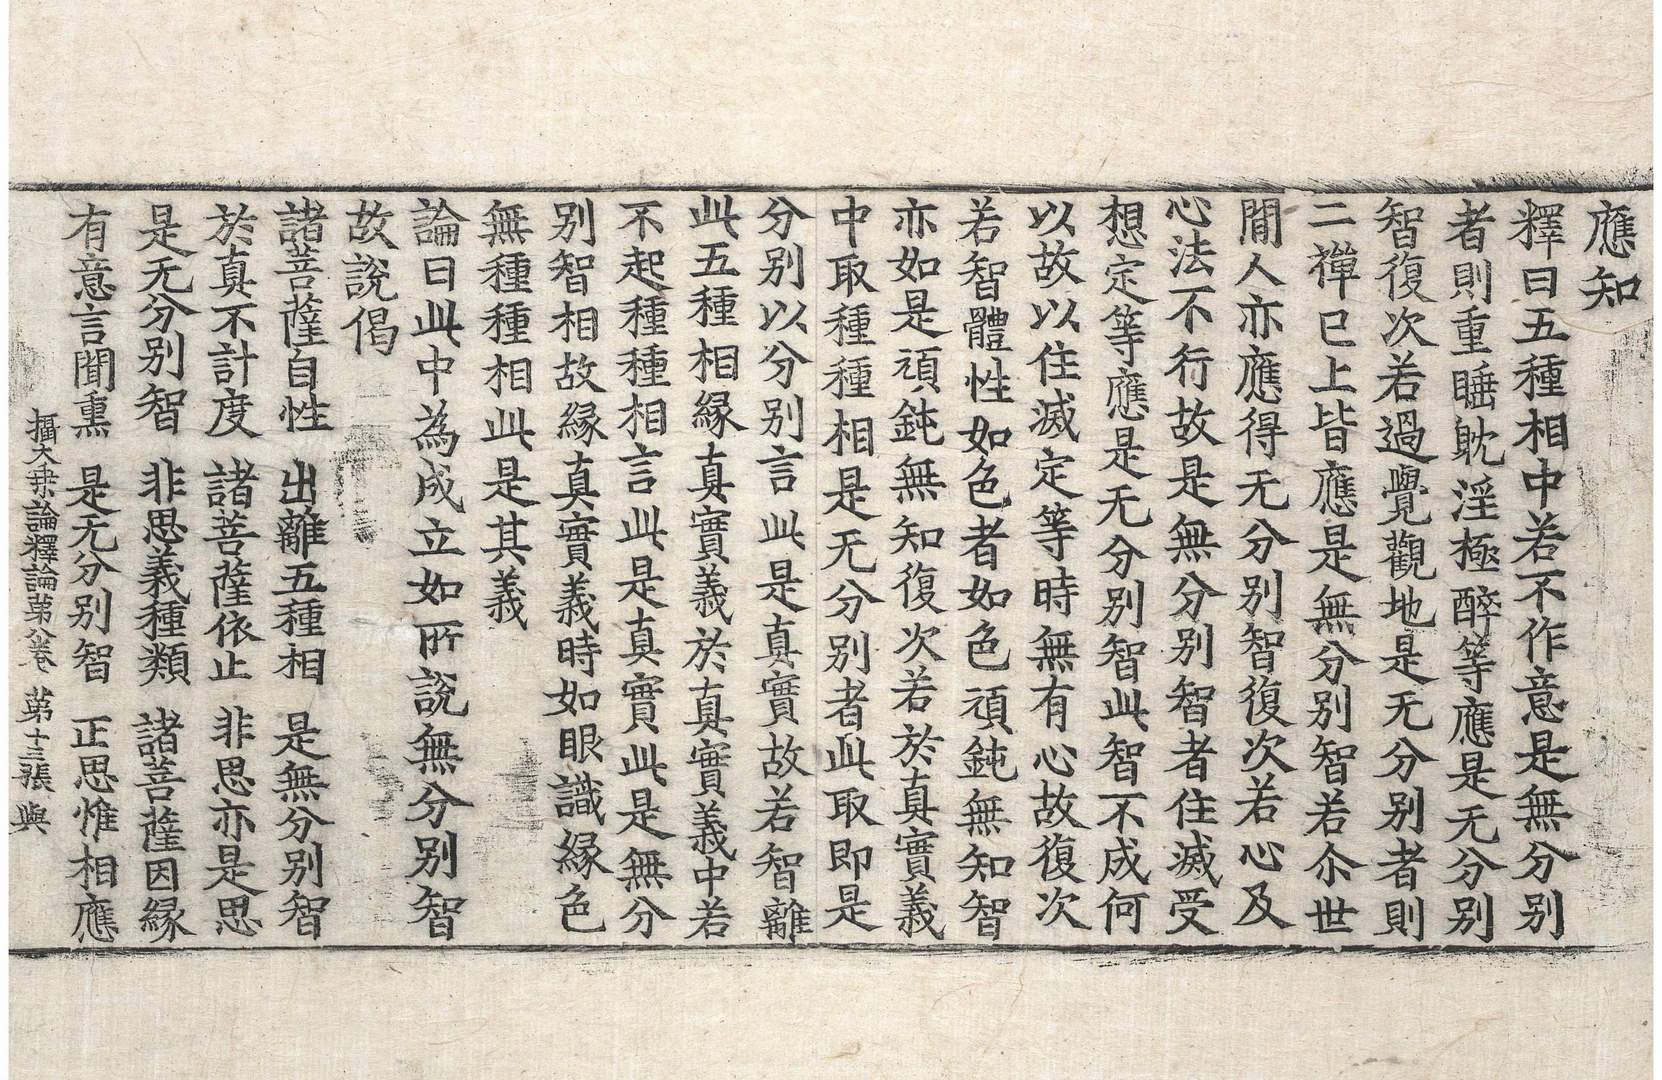 應知
釋曰五種相中若不作意是無分別
者則重睡眈淫極醉等應是无分別
智復次若過覺觀地是无分別者則
二禪已上皆應是無分別智若尒世
間人亦應得无分別智復次若心及
心法不行故是無分別智者住滅受
想定等應是无分別智此智不成何
以故以住滅定等時無有心故復次
若智體性如色者如色頑鈍無知智
亦如是頑鈍無知復次若於真實義
中取種種相是无分別者此取即是
分別以分別言此是真實故若智離
此五種相緣真實義於真實義中若
不起種種相言此是真實此是無分
別智相故緣真實義時如眼識緣色
無種種相此是其義
論曰此中為成立如所說無分別智
故說偈
諸菩薩自性 出離五種相 是無分別智
於真不計度 諸菩薩依止 非思亦是思
是无分別智 非思義種類 諸菩薩因緣
有意言聞熏 是无分別智 正思惟相應
攝大乗論釋論苐八卷 苐十三張 與